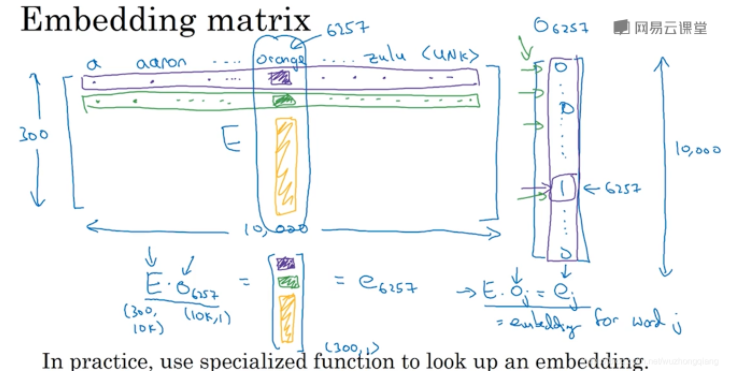 Embedding matrix
6257
O6257
网易云课堂
a aaron .... orange .... zulu <UNK>
300
E
10,000
1 ← 6257
10,000
E · O6257 = [ ] = e6257
(300, 10K) (10K,1)
(300,1)
→ E · Oj = ej
= embedding for word j
In practice, use specialized function to look up an embedding.